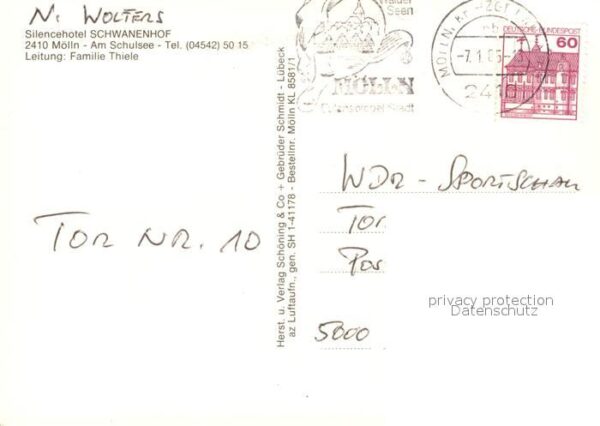 N. WOLTERS
Silencehotel SCHWANENHOF
2410 Mölln - Am Schulsee - Tel. (04542) 50 15
Leitung: Familie Thiele
TOR NR. 10
Herst. u. Verlag Schöning & Co + Gebrüder Schmidt - Lübeck
az Luftaufn., gen. SH 1-41178 - Bestellnr. Mölln KL 8581/1
Seen
MÖLLN
Eulenspiegel-Stadt
2410
DEUTSCHE BUNDESPOST
60
WDR - SPORTSCHAU
TOR
Pos
5000
privacy protection
Datenschutz